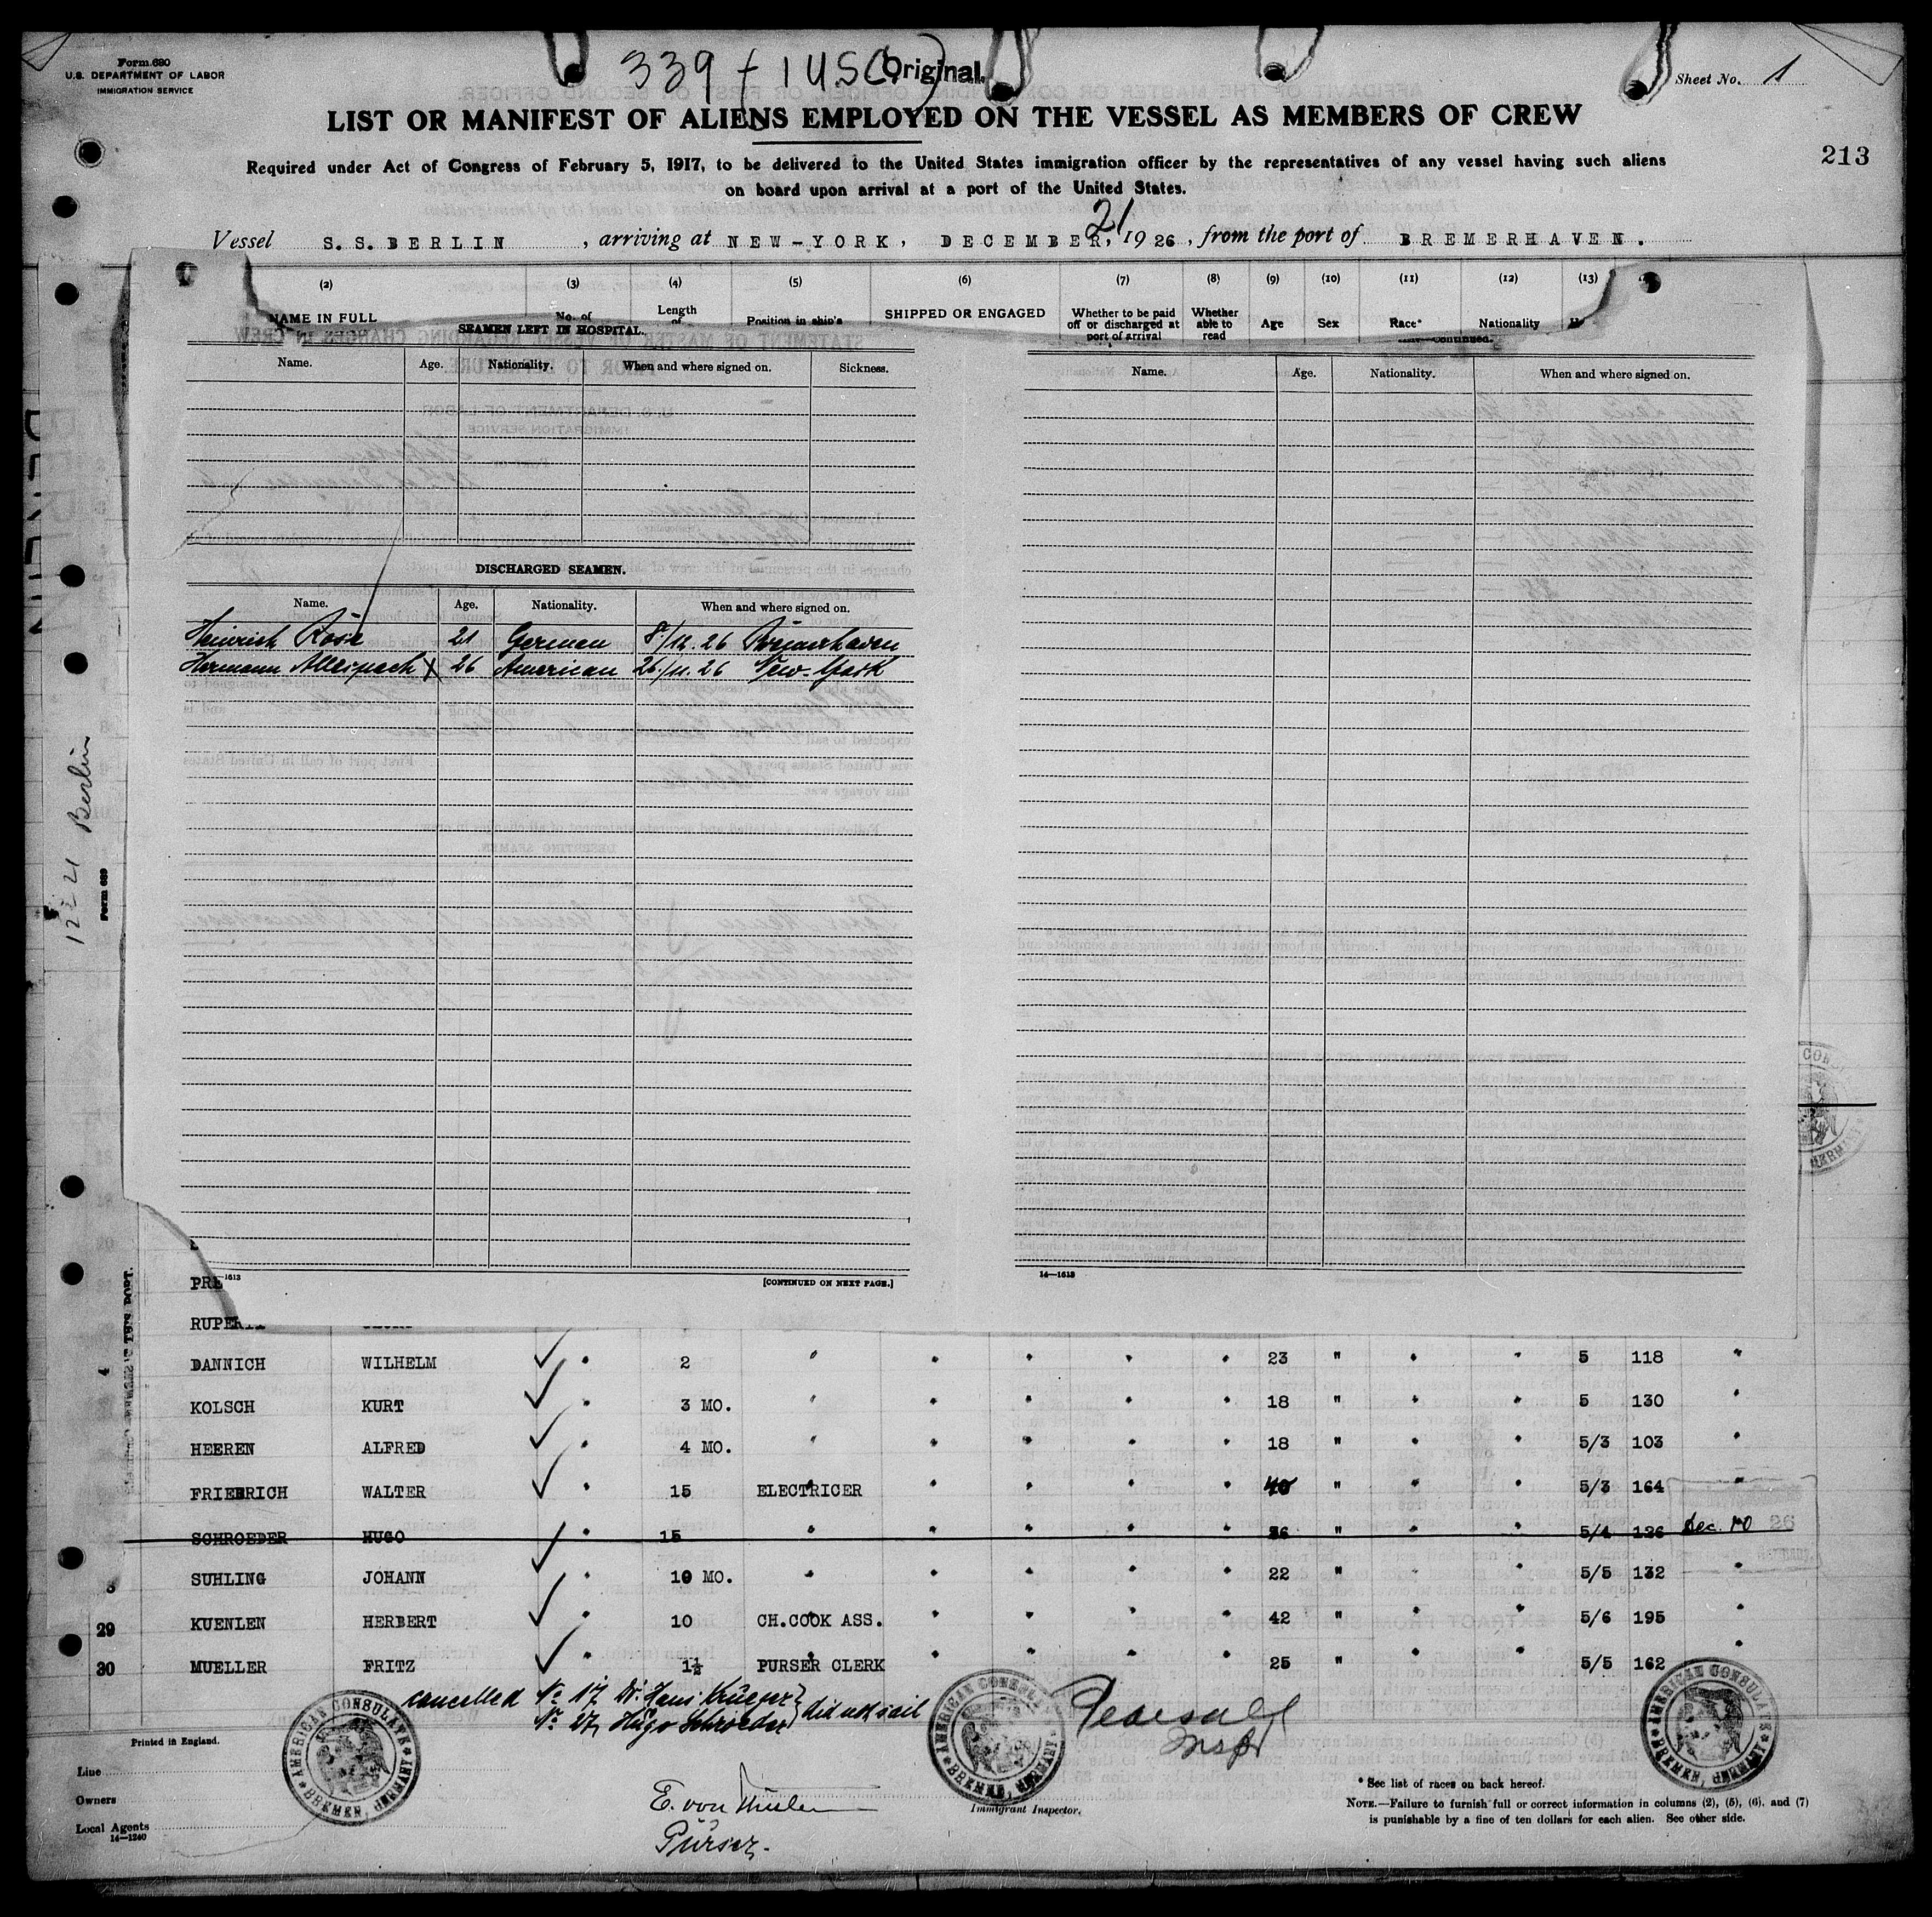 Form 680
U.S. DEPARTMENT OF LABOR
IMMIGRATION SERVICE
339 + 1 USC
Original
Sheet No. 1
LIST OR MANIFEST OF ALIENS EMPLOYED ON THE VESSEL AS MEMBERS OF CREW
213
Required under Act of Congress of February 5, 1917, to be delivered to the United States immigration officer by the representatives of any vessel having such aliens
on board upon arrival at a port of the United States.
Vessel S. S. BERLIN, arriving at NEW-YORK, DECEMBER, 21 1926, from the port of BREMERHAVEN.
(2) (3) (4) (5) (6) (7) (8) (9) (10) (11) (12) (13)
NAME IN FULL No. of Length of Position in ship's SHIPPED OR ENGAGED Whether to be paid off or discharged at port of arrival Whether able to read Age Sex Race* Nationality
SEAMEN LEFT IN HOSPITAL.
Name. Age. Nationality. When and where signed on. Sickness.
Continued.
Name. Age. Nationality. When and where signed on.
DISCHARGED SEAMEN.
Name. Age. Nationality. When and where signed on.
Heinrich Rose 21 German 8/12.26 Bremerhaven
Hermann Allespach X 26 American 26/11.26 New-York
12-21 Berlin
Form 689
1613 [CONTINUED ON NEXT PAGE.]
14—1613
PRE
RUPER
DANNICH WILHELM ✓ " 2 " " " " " 23 " " " 5 118 "
KOLSCH KURT ✓ " 3 MO. " " " " " 18 " " " 5 130 "
HEEREN ALFRED ✓ " 4 MO. " " " " " 18 " " " 5/3 103 "
FRIEDRICH WALTER ✓ " 15 ELECTRICER " " " " 40 " " " 5/3 164 "
SCHROEDER HUGO " 15 " " " " " 36 " " " 5/4 126 Dec. 10 26
SUHLING JOHANN ✓ " 10 MO. " " " " " 22 " " " 5/5 132 "
29 KUENLEN HERBERT ✓ " 10 CH.COOK ASS. " " " " 42 " " " 5/6 195 "
30 MUELLER FRITZ ✓ " 1½ PURSER CLERK " " " " 25 " " " 5/5 162 "
cancelled No 17, Dr. Hans Krüger
No 27, Hugo Schroeder } did not sail
Pearsall
Inspr
AMERICAN CONSULATE BREMEN, GERMANY
AMERICAN CONSULATE BREMEN, GERMANY
AMERICAN CONSULATE BREMEN, GERMANY
Printed in England.
Line
Owners
Local Agents
14—1240
E. von
Purser.
Immigrant Inspector.
* See list of races on back hereof.
NOTE.—Failure to furnish full or correct information in columns (2), (5), (6), and (7)
is punishable by a fine of ten dollars for each alien. See other side.